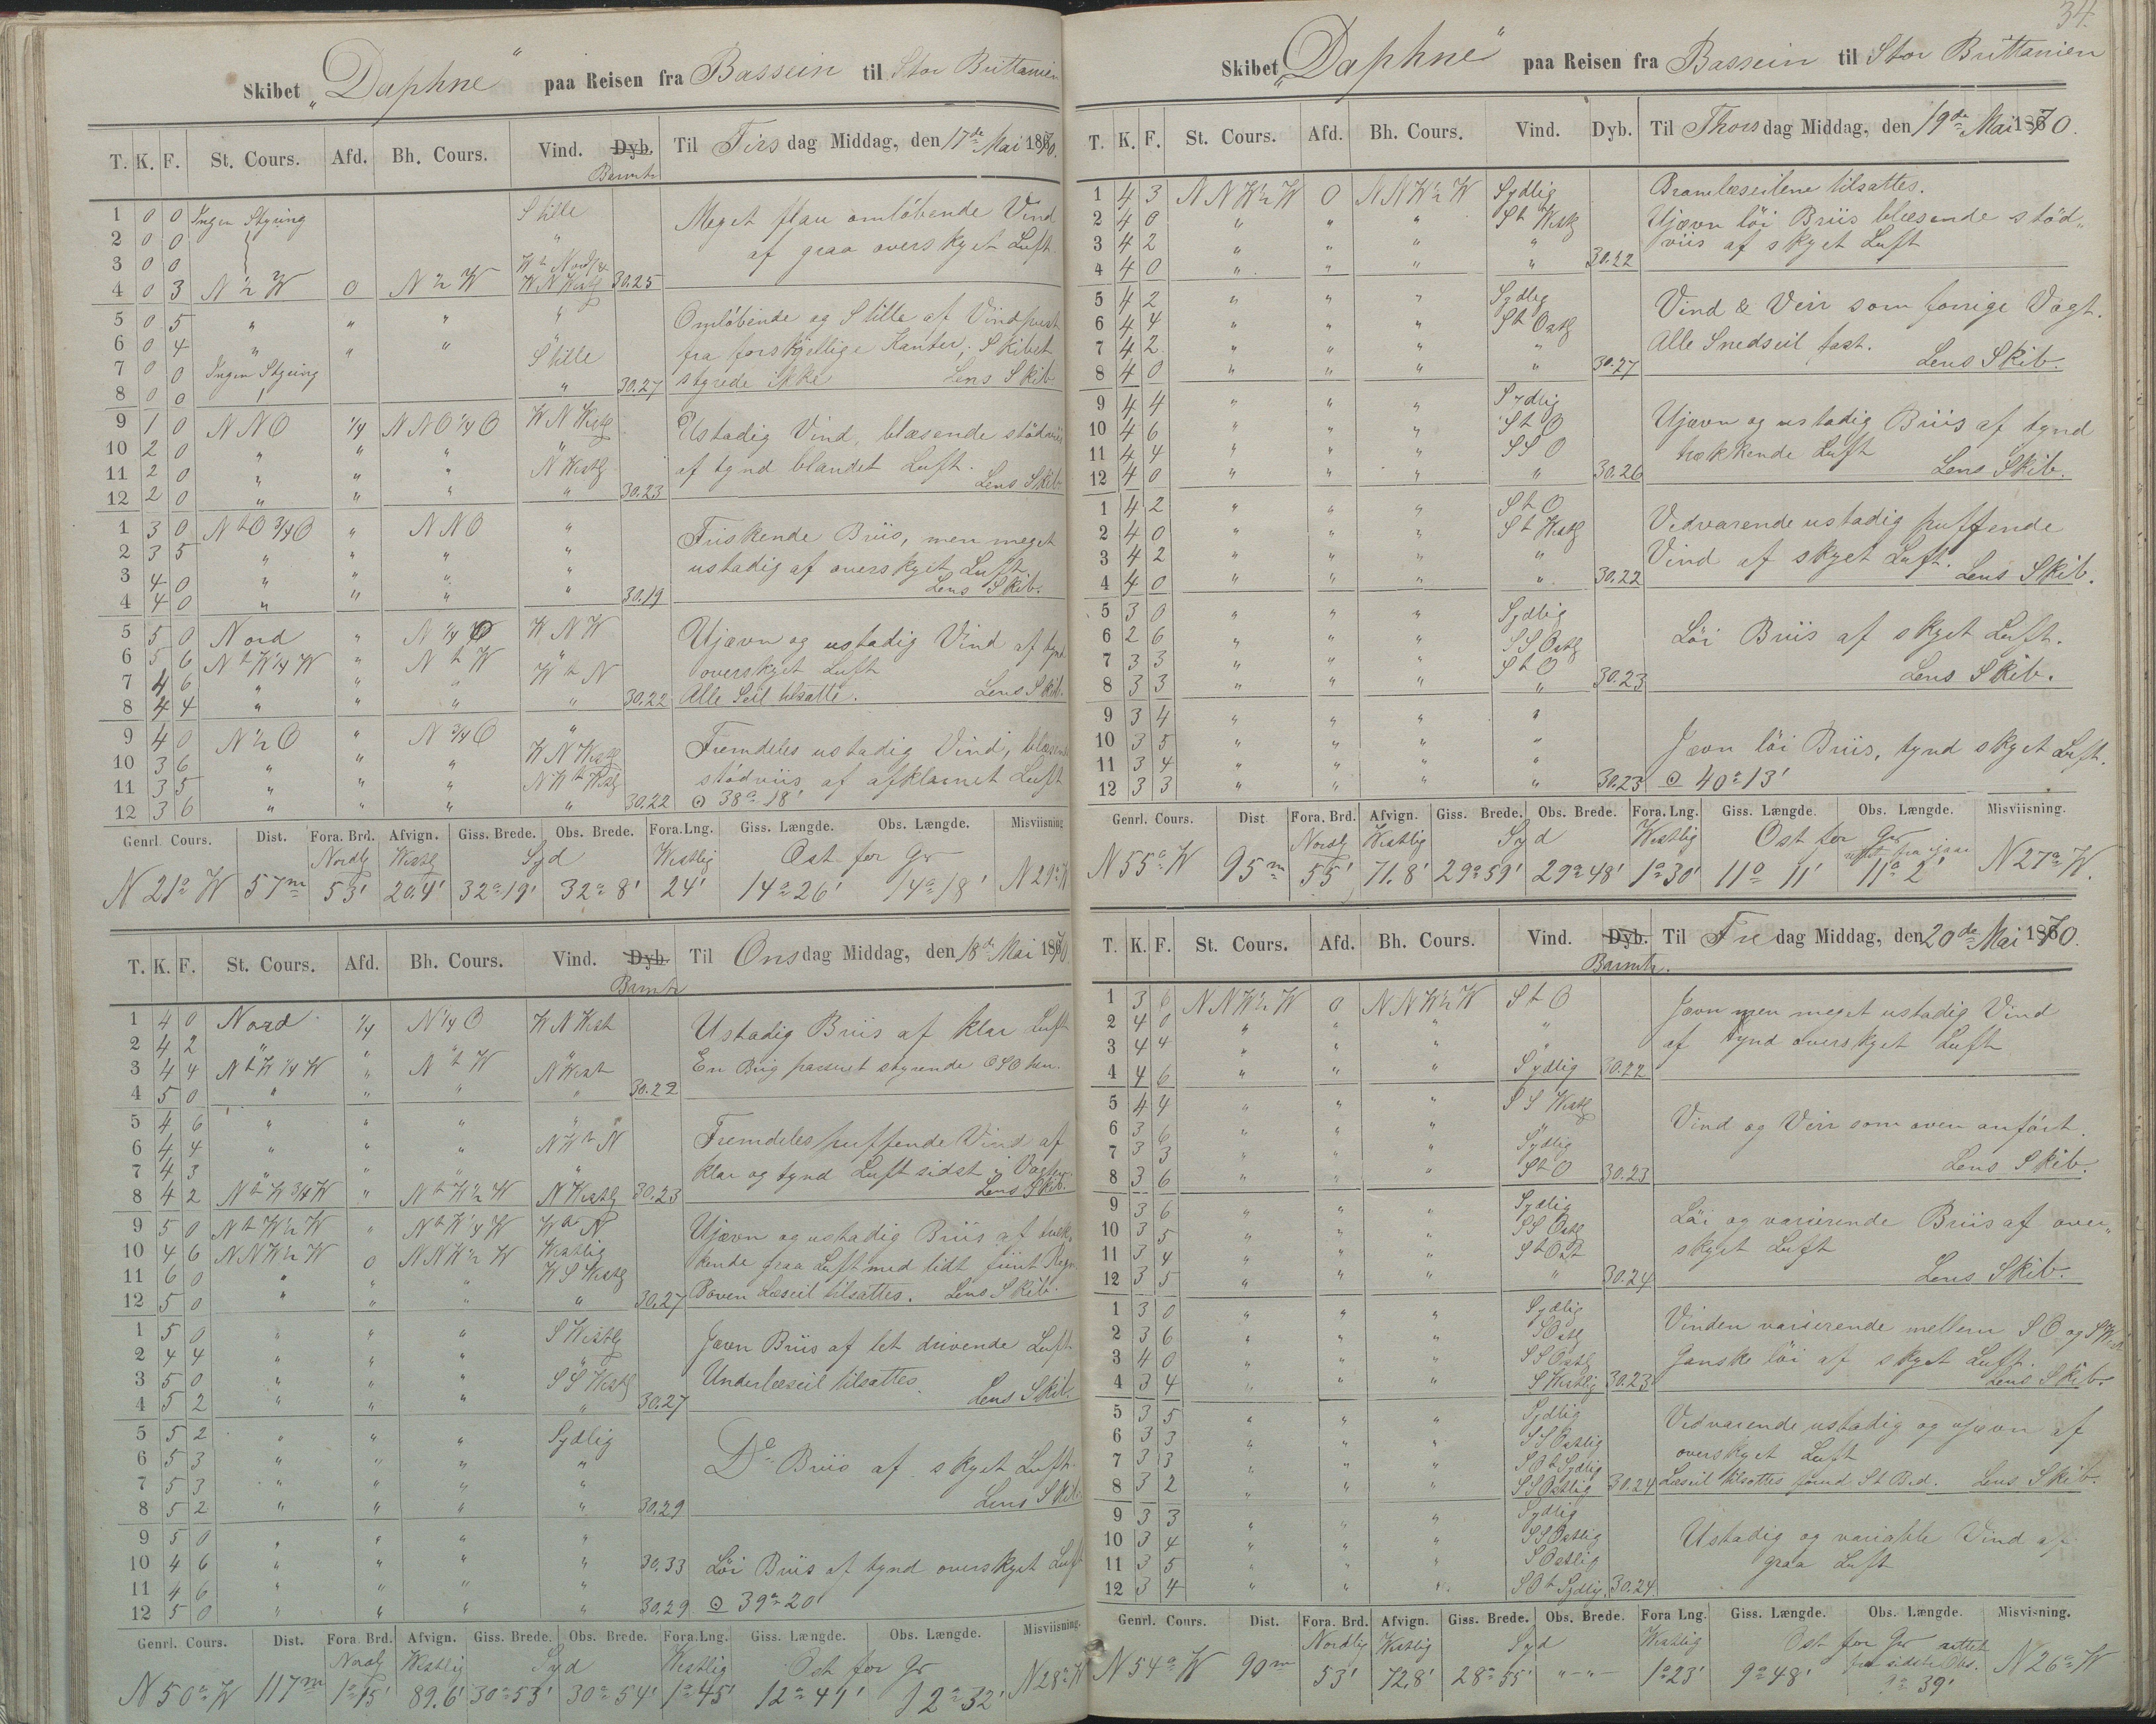 Skibet "Daphne" paa Reisen fra Bassein til Stor Brittanien
T. K. F. St. Cours. Afd. Bh. Cours. Vind. Dyb. Til Tirsdag Middag, den 17de Mai 1870.
Barmtr
1 0 0 Ingen Styring Stille Meget flau omløbende Vind
2 0 0 " af graa overskyet Luft.
3 0 0
4 0 3 N ½ W 0 N ½ W W N Westlg 30.25
5 0 5 " " " " Omløbende og Stille af Vindpust
6 0 4 " " " " fra forskjellige Kanter, Skibet
7 0 0 Ingen Styring Stille styrede ikke
8 0 0 " 30.27 Lens Skib
9 1 0 N N O ¼ N N O ¼ O W N Westlg Ustadig Vind, blæsende stødviis
10 2 0 " " " " af tynd blandet Luft.
11 2 0 " " " N Westlg Lens Skib
12 2 0 " " " " 30.23
1 3 0 N t O ¾ O " N N O " Friskende Briis, men meget
2 3 5 " " " " ustadig af overskyet Luft.
3 4 0 " " " " Lens Skib.
4 4 0 " " " " 30.19
5 5 0 Nord " N ¼ O W N W Ujævn og ustadig Vind af tynd
6 5 6 N t W ¼ W " N t W " overskyet Luft
7 4 6 " " " W t N Alle Seil tilsatte. Lens Skib.
8 4 4 " " " " 30.22
9 4 0 N ½ O " N ¾ O " Fremdeles ustadig Vind, blæsende
10 3 6 " " " W N Westlg stødviis af afklarnet Luft
11 3 5 " " " N W t Westlg
12 3 6 " " " " 30.22 ⊙ 38° 18'
Genrl. Cours. Dist. Fora. Brd. Afvign. Giss. Brede. Obs. Brede. Fora. Lng. Giss. Længde. Obs. Længde. Misviisning
Nordlg Westlg Syd Westlig Ost for Gr
N 21° W 57m 53' 20.4' 32° 19' 32° 8' 24' 14° 26' 14° 18' N 29° W
T. K. F. St. Cours. Afd. Bh. Cours. Vind. Dyb. Til Onsdag Middag, den 18de Mai 1870
Barmtr
1 4 0 Nord ¼ N ¼ O W N West Ustadig Briis af klar Luft
2 4 2 " " " " En Brig passeret styrende OSO hen.
3 4 4 N t W ¼ W " N t W N West
4 5 0 " " " " 30.22
5 4 6 " " " " Fremdeles puffende Vind af
6 4 4 " " " N W t N klar og tynd Luft sidst i Vagten
7 4 3 " " " " Lens Skib.
8 4 2 N t W ¾ W " N t W ½ W N Westlg 30.23
9 5 0 N t W ½ W " N t W ¼ W W t N Ujævn og ustadig Briis af træk,
10 4 6 N N W ½ W 0 N N W ½ W Westlig kende graa Luft med lidt fiint Regn
11 6 0 " " " W S Westlg Boven Læseil tilsattes. Lens Skib.
12 5 0 " " " " 30.27
1 5 0 " " " S Westlg Jævn Briis af let drivende Luft
2 4 4 " " " " Underlæseil tilsattes.
3 5 0 " " " S S Westlg Lens Skib.
4 5 2 " " " " 30.27
5 5 2 " " " Sydlig
6 5 3 " " " " Do Briis af skyet Luft
7 5 3 " " " " Lens Skib
8 5 2 " " " " 30.29
9 5 0 " " " "
10 4 6 " " " " 30.33 Løi Briis af tynd overskyet Luft
11 4 6 " " " "
12 5 0 " " " " 30.29 ⊙ 39° 20'
Genrl. Cours. Dist. Fora. Brd. Afvign. Giss. Brede. Obs. Brede. Fora. Lng. Giss. Længde. Obs. Længde. Misviisning.
Nordlg Westlig Syd Westlig Ost for Gr
N 50° W 117m 1° 15' 89.6' 30° 53' 30° 54' 1° 45' 12° 41' 12° 32' N 28° W
34.
Skibet "Daphne" paa Reisen fra Bassein til Stor Brittanien
T. K. F. St. Cours. Afd. Bh. Cours. Vind. Dyb. Til Thorsdag Middag, den 19de Mai 1870.
1 4 3 N N W ½ W 0 N N W ½ W Sydlig Bramlæseilene tilsattes.
2 4 0 " " " S t Westlg Ujævn løi Briis blæsende stød,,
3 4 2 " " " " viis af skyet Luft
4 4 0 " " " " 30.22
5 4 2 " " " Sydlig Vind & Veir som forrige Vagt.
6 4 4 " " " S t Ostlg Alle Snedseil fast.
7 4 2 " " " " Lens Skib.
8 4 0 " " " " 30.27
9 4 4 " " " Sydlig Ujævn og ustadig Briis af tynd
10 4 6 " " " S t O trækkende Luft
11 4 4 " " " S S O Lens Skib.
12 4 0 " " " " 30.26
1 4 2 " " " S t O Vedvarende ustadig puffende
2 4 0 " " " S t Westlg Vind af skyet Luft.
3 4 2 " " " " Lens Skib.
4 4 0 " " " " 30.22
5 3 0 " " " Sydlig
6 2 6 " " " S S Ostlg Løi Briis af skyet Luft.
7 3 3 " " " S t O Lens Skib.
8 3 3 " " " " 30.23
9 3 4 " " " "
10 3 5 " " " " Jævn løi Briis, tynd skyet Luft.
11 3 4 " " " "
12 3 3 " " " " 30.23 ⊙ 40° 13'
Genrl. Cours. Dist Fora. Brd. Afvign. Giss. Brede. Obs. Brede. Fora. Lng. Giss. Længde. Obs. Længde. Misviisning.
Norsly Westlig Syd Westlig Ost for Gr
rettet fra igaar
N 55° W 95m 55' 71.8' 29° 59' 29° 48' 1° 30' 11° 11' 11° 2' N 27° W.
T. K. F. St. Cours. Afd. Bh. Cours. Vind. Dyb. Til Fredag Middag, den 20de Mai 1870.
Barmtr.
1 3 6 N N W ½ W 0 N N W ½ W S t O Jævn men meget ustadig Vind
2 4 0 " " " " af tynd overskyet Luft
3 4 4 " " " "
4 4 6 " " " Sydlig 30.22
5 4 4 " " " S S Westlg Vind og Veir som oven anført.
6 3 6 " " " "
7 3 3 " " " Sydlig Lens Skib.
8 3 6 " " " S t O 30.23
9 3 6 " " " Sydlig Løi og varierende Briis af over,,
10 3 5 " " " S S Ostlg skyet Luft
11 3 4 " " " S t Ost Lens Skib.
12 3 5 " " " " 30.24
1 3 0 " " " Sydlig Vinden varierende mellem S O og S W
2 3 6 " " " S Ostlg Ganske løi af skyet Luft.
3 4 0 " " " S S Ostlg Lens Skib.
4 3 4 " " " S Westlig 30.23
5 3 5 " " " Sydlig Vedvarende ustadig og ujævn af
6 3 3 " " " S S Ostlig overskyet Luft
7 3 3 " " " S O t Sydlig
8 3 2 " " " S S Ostlig 30.24 Læseil tilsattes St B.d. Lens Skib.
9 3 3 " " " Sydlig Ustadig og variable Vind af
10 3 4 " " " S S Ostlig graa Luft
11 3 5 " " " S Ostlig
12 3 4 " " " S O t Sydlig 30.24
Genrl. Cours. Dist. Fora. Brd. Afvign. Giss. Brede. Obs. Brede. Fora Lng. Giss. Længde. Obs. Længde. Misvisning.
Nordlig Westlig Syd Westlig Ost for Gr rettet
fra sidste Obs.
N 54° W 90m 53' 72.8' 28° 55' "—"— 1° 23' 9° 48' 9° 39' N 26° W